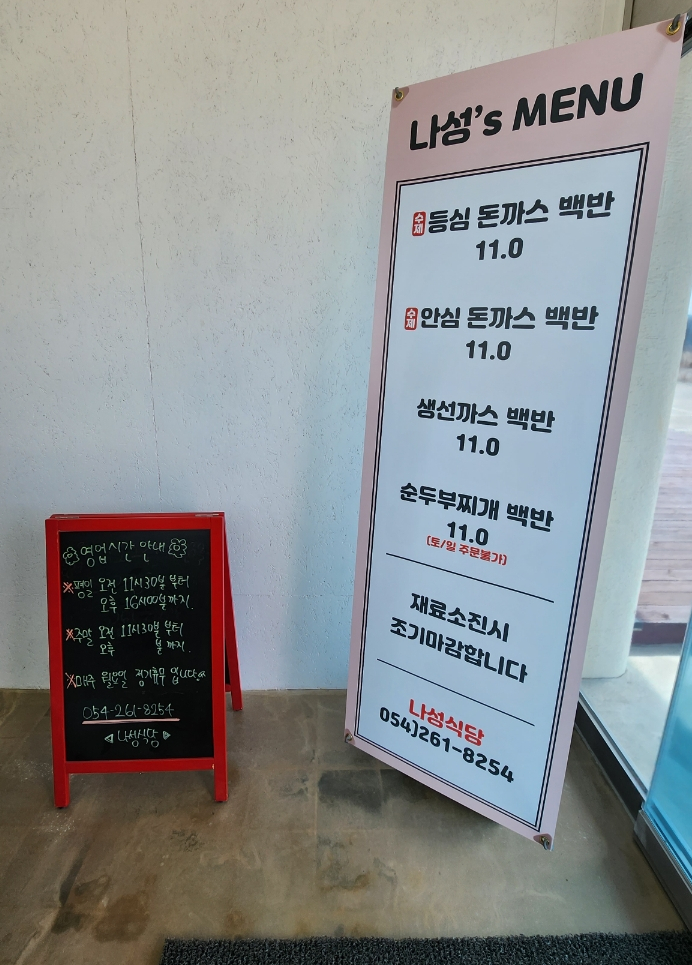 영업시간 안내
평일 오전 11시30분 부터
오후 16시00분 까지.
주말 오전 11시30분 부터
오후 분 까지.
매주 월요일 정기휴무 입니다
054-261-8254
◁ 나성식당 ▷
나성's MENU
수제 등심 돈까스 백반
11.0
수제 안심 돈까스 백반
11.0
생선까스 백반
11.0
순두부찌개 백반
11.0
(토/일 주문불가)
재료소진시
조기마감합니다
나성식당
054)261-8254